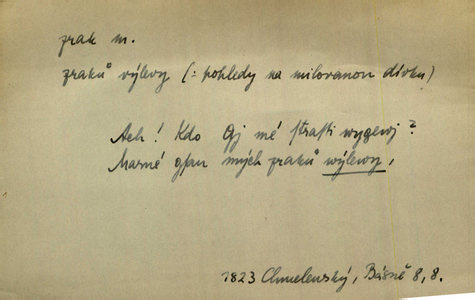 zrak m.
zraků výlevy (: pohledy na milovanou dívku)
Ach! Kdo Gj mé strasti wygewj?
Marné gsau mých zraků wýlewy,
1823 Chmelenský, Básně 8, 8.